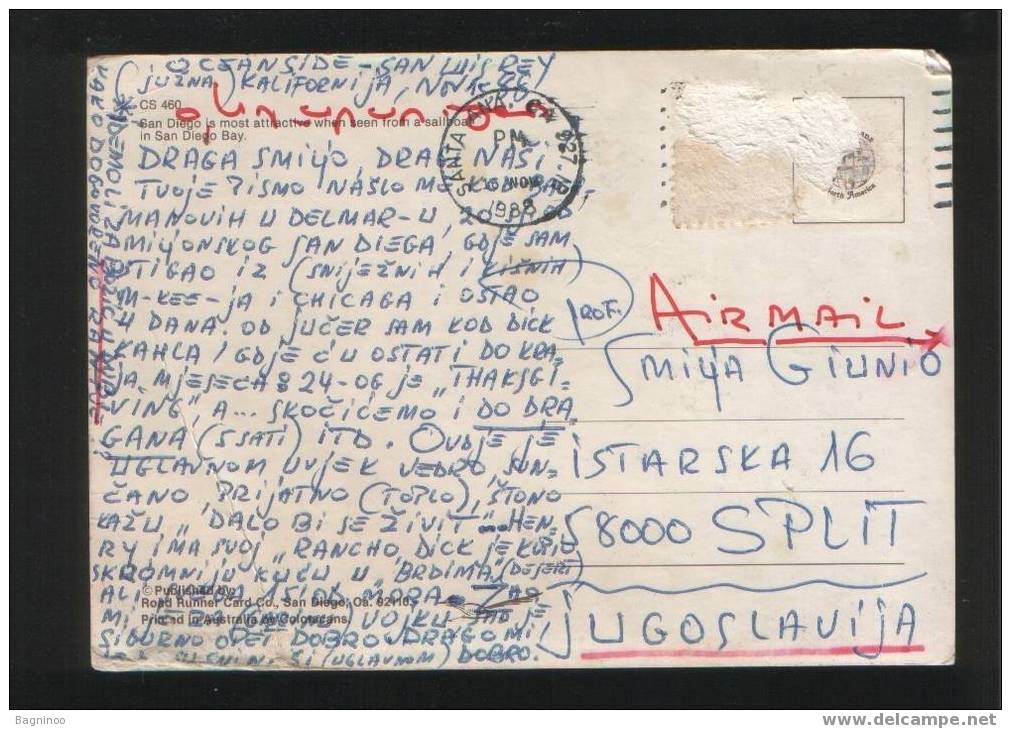 OCEANSIDE - SAN LUIS REY
(JUŽNA) KALIFORNIJA, NOV.
CS 460
San Diego is most attractive when seen from a sailboat
in San Diego Bay.
SANTA ANA, CA 927
PM
16 NOV
1988
DRAGA SMILJO, DRAGI NAŠI,
TVOJE PISMO NAŠLO ME KOD
MANOVIH U DELMAR-U, 20
MILIJONSKOG SAN DIEGA, GDJE SAM
STIGAO IZ (SNIJEŽNIH I KIŠNIH)
M-KEE-JA I CHICAGA I OSTAO
4 DANA. OD JUČER SAM KOD DICK
KAHLA, GDJE ĆU OSTATI DO KRA-
JA MJESECA: 24-OG JE "THAKSGI-
VING" A... SKOČIĆEMO I DO DRA
GANA (5 SATI) ITD. OVDJE JE
UGLAVNOM UVJEK VEDRO, SUN-
ČANO PRIJATNO (TOPLO), ŠTONO
KAŽU "DALO BI SE ŽIVIT" ... HEN-
RY IMA SVOJ "RANCHO, DICK JE KUPIO
SKROMNIJU KUĆU U "BRDIMA"
ALI OD MORA. ŽAO
MI VOJKU
SIGURNO OPET DOBRO. DRAGO MI
(UGLAVNOM) DOBRO.
© Published by:
Road Runner Card Co., San Diego, Ca. 92110
Printed in Australia by Colorscans
KAKO DOGOVORENO
North America
AIR MAIL
PROF.
SMILJA GIUNIO
ISTARSKA 16
58000 SPLIT
JUGOSLAVIJA
Bagninoo
www.delcampe.net